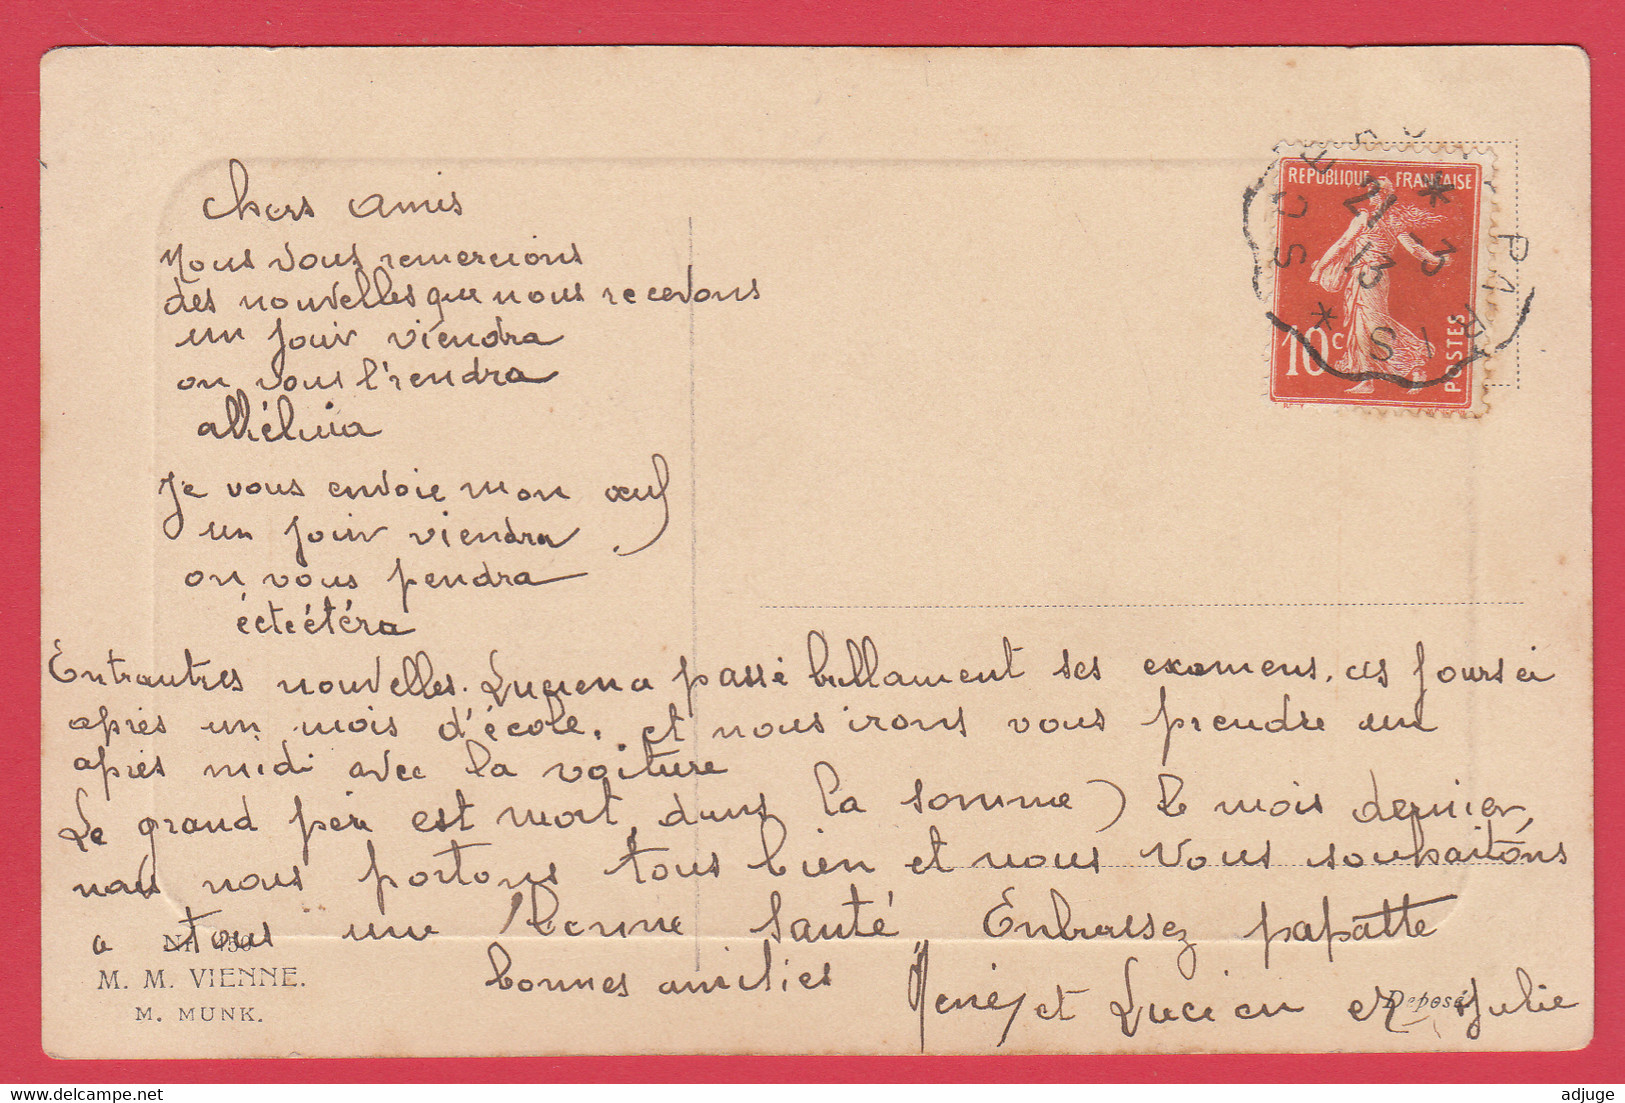 chers amis
Nous vous remercions
des nouvelles que nous recevons
un jour viendra
on vous l'rendra
alléluia
Je vous envoie mon œuf
un jour viendra
on vous pendra
éctcétéra
Entrautres nouvelles. Lucien a passé brillament ses examens. ces jours ci
après un mois d'école. et nous irons vous prendre un
après midi avec la voiture
Le grand père est mort, dans la somme) le mois dernier,
nous nous portons tous bien et nous vous souhaitons
a tous une bonne santé Embrassez papatte
bonnes amitiés René et Lucien et Julie
M. M. VIENNE.
M. MUNK.
Deposé
REPUBLIQUE FRANÇAISE
10c
POSTES
21-3
13
PARIS
adjuge